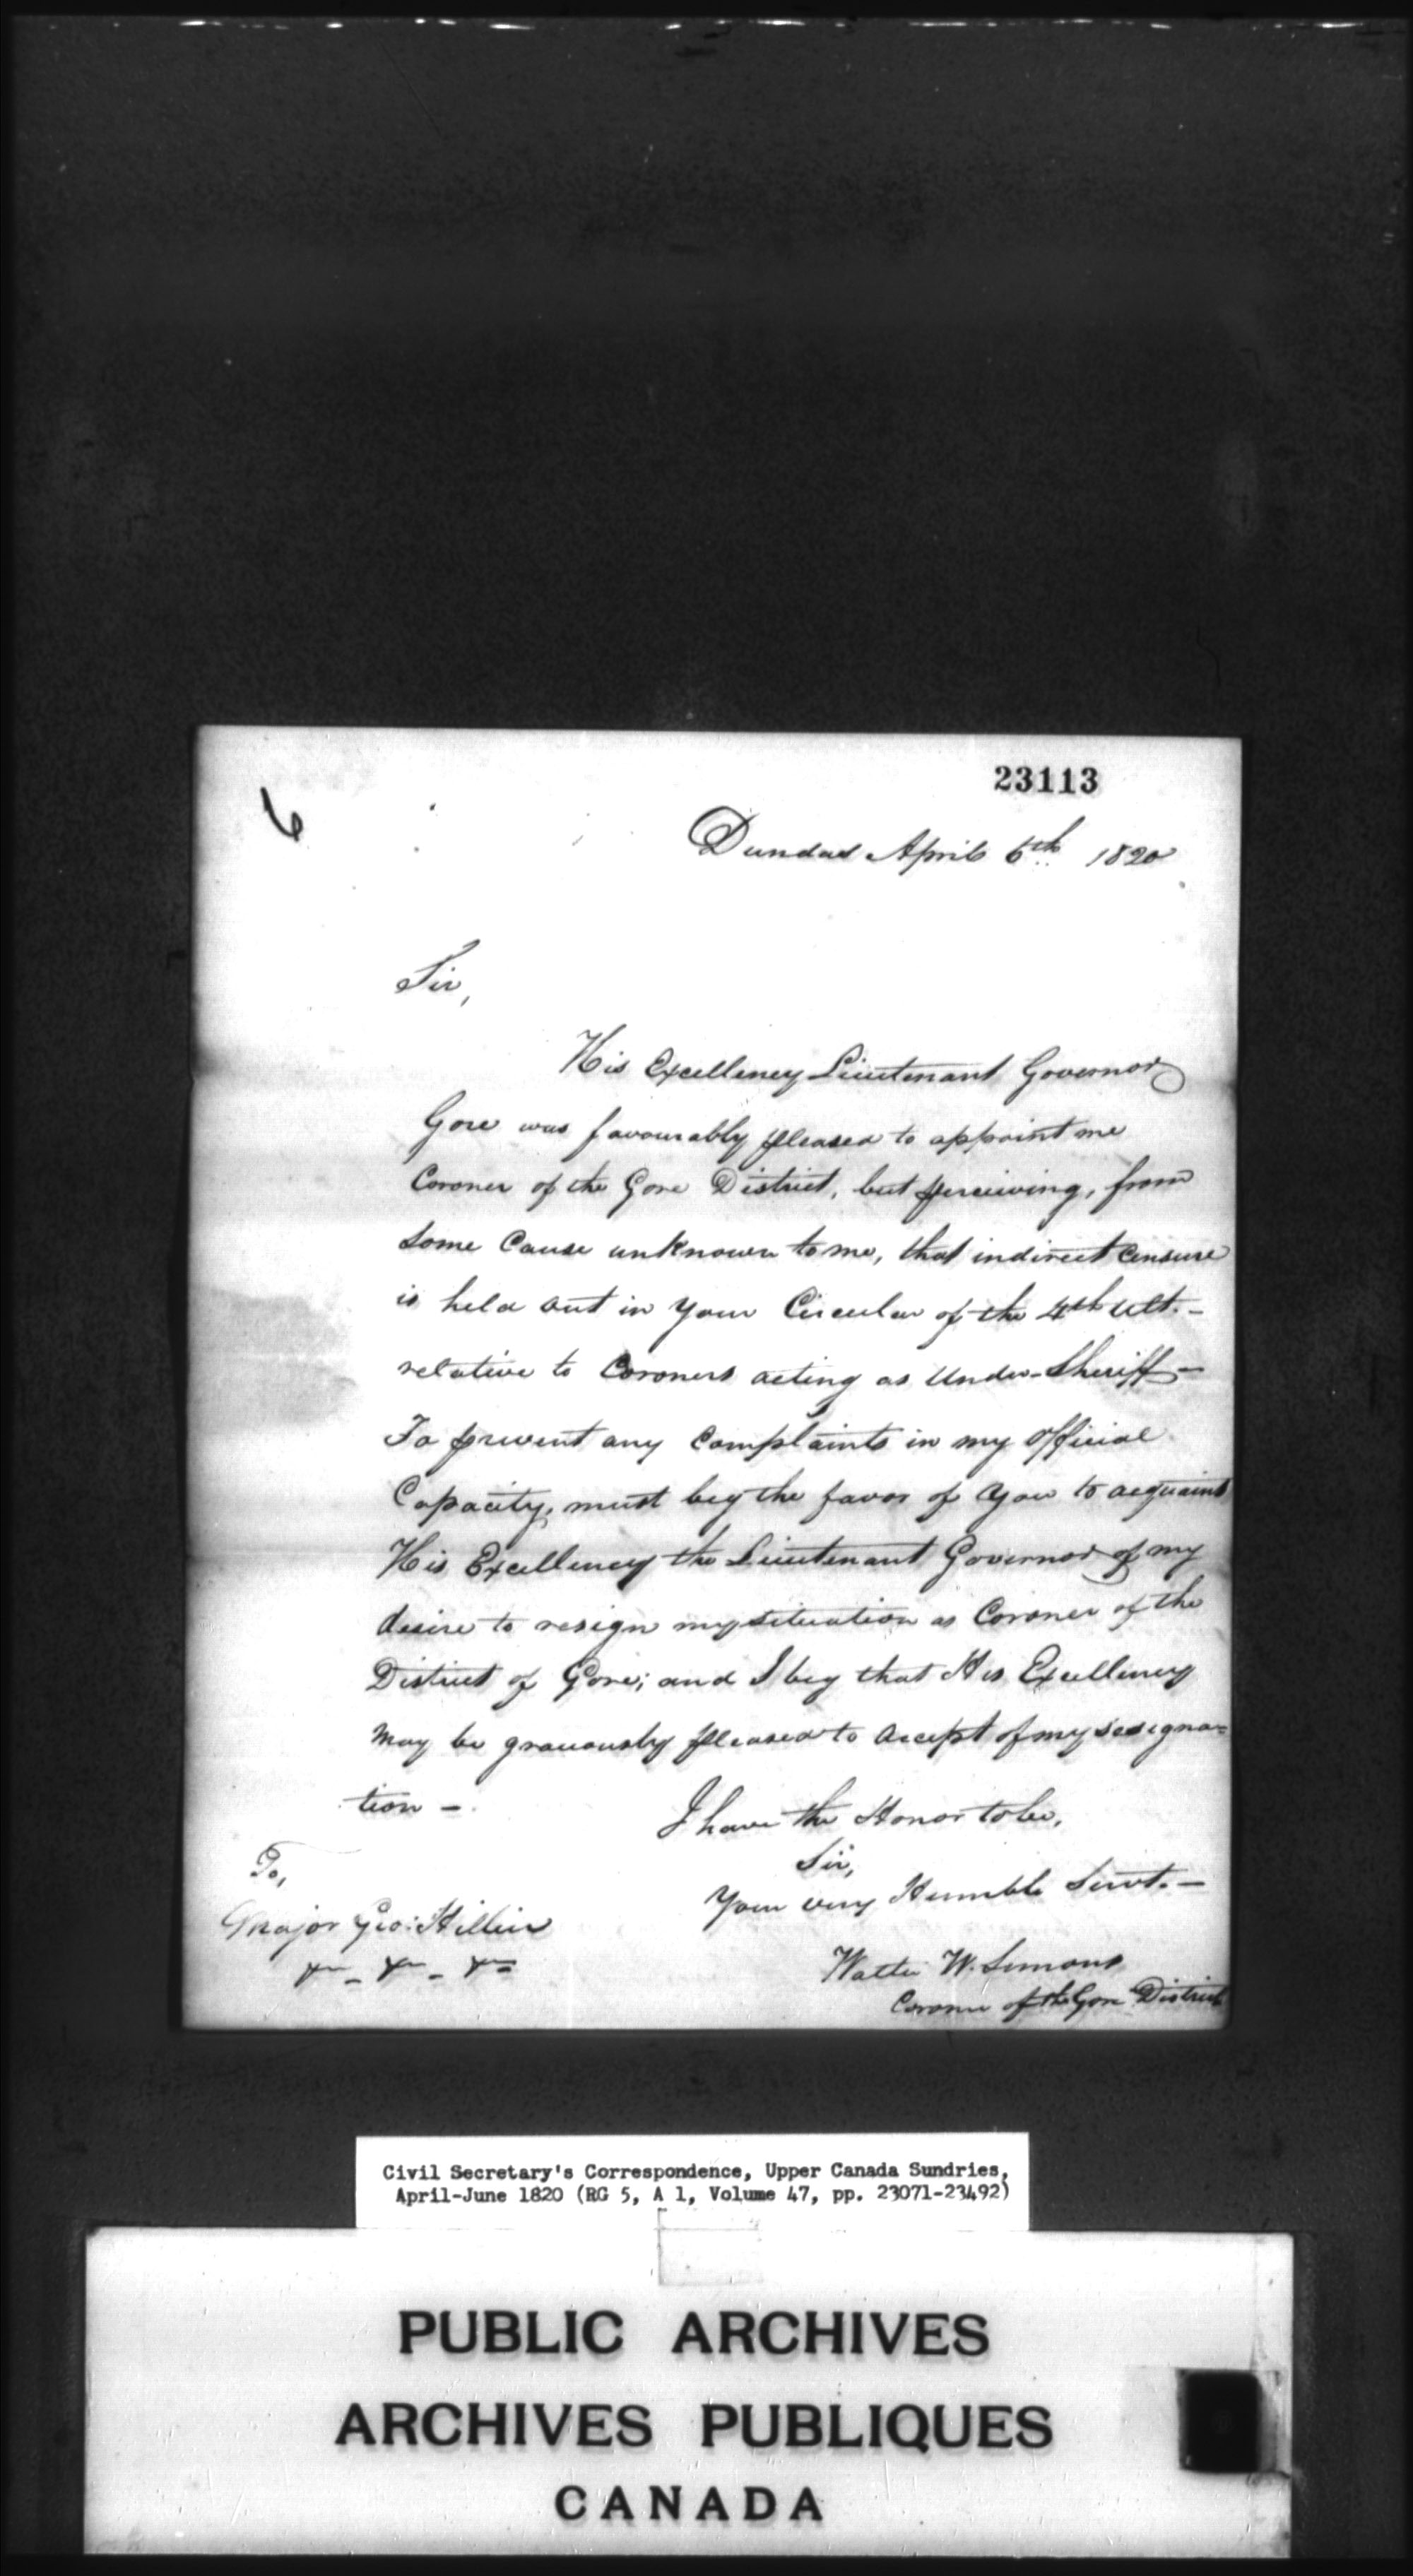 23113
6
Dundas April 6th 1820
Sir,
His Excellency Lieutenant Governor
Gore was favourably pleased to appoint me
Coroner of the Gore District, but perceiving, from
some Cause unknown to me, that indirect Censure
is held out in your Circular of the 4th Ult. -
relative to Coroners acting as Under-Sheriff -
To prevent any Complaints in my Official
Capacity, must beg the favor of you to acquaint
His Excellency the Lieutenant Governor of my
desire to resign my situation as Coroner of the
District of Gore; and I beg that His Excellency
may be graciously pleased to accept of my resigna=
tion -
I have the Honor to be,
Sir,
Your very Humble Servt. -
Walter W. Simons
Coroner of the Gore District
To,
Major Geo: Hillier
Civil Secretary's Correspondence, Upper Canada Sundries,
April-June 1820 (RG 5, A 1, Volume 47, pp. 23071-23492)
PUBLIC ARCHIVES
ARCHIVES PUBLIQUES
CANADA